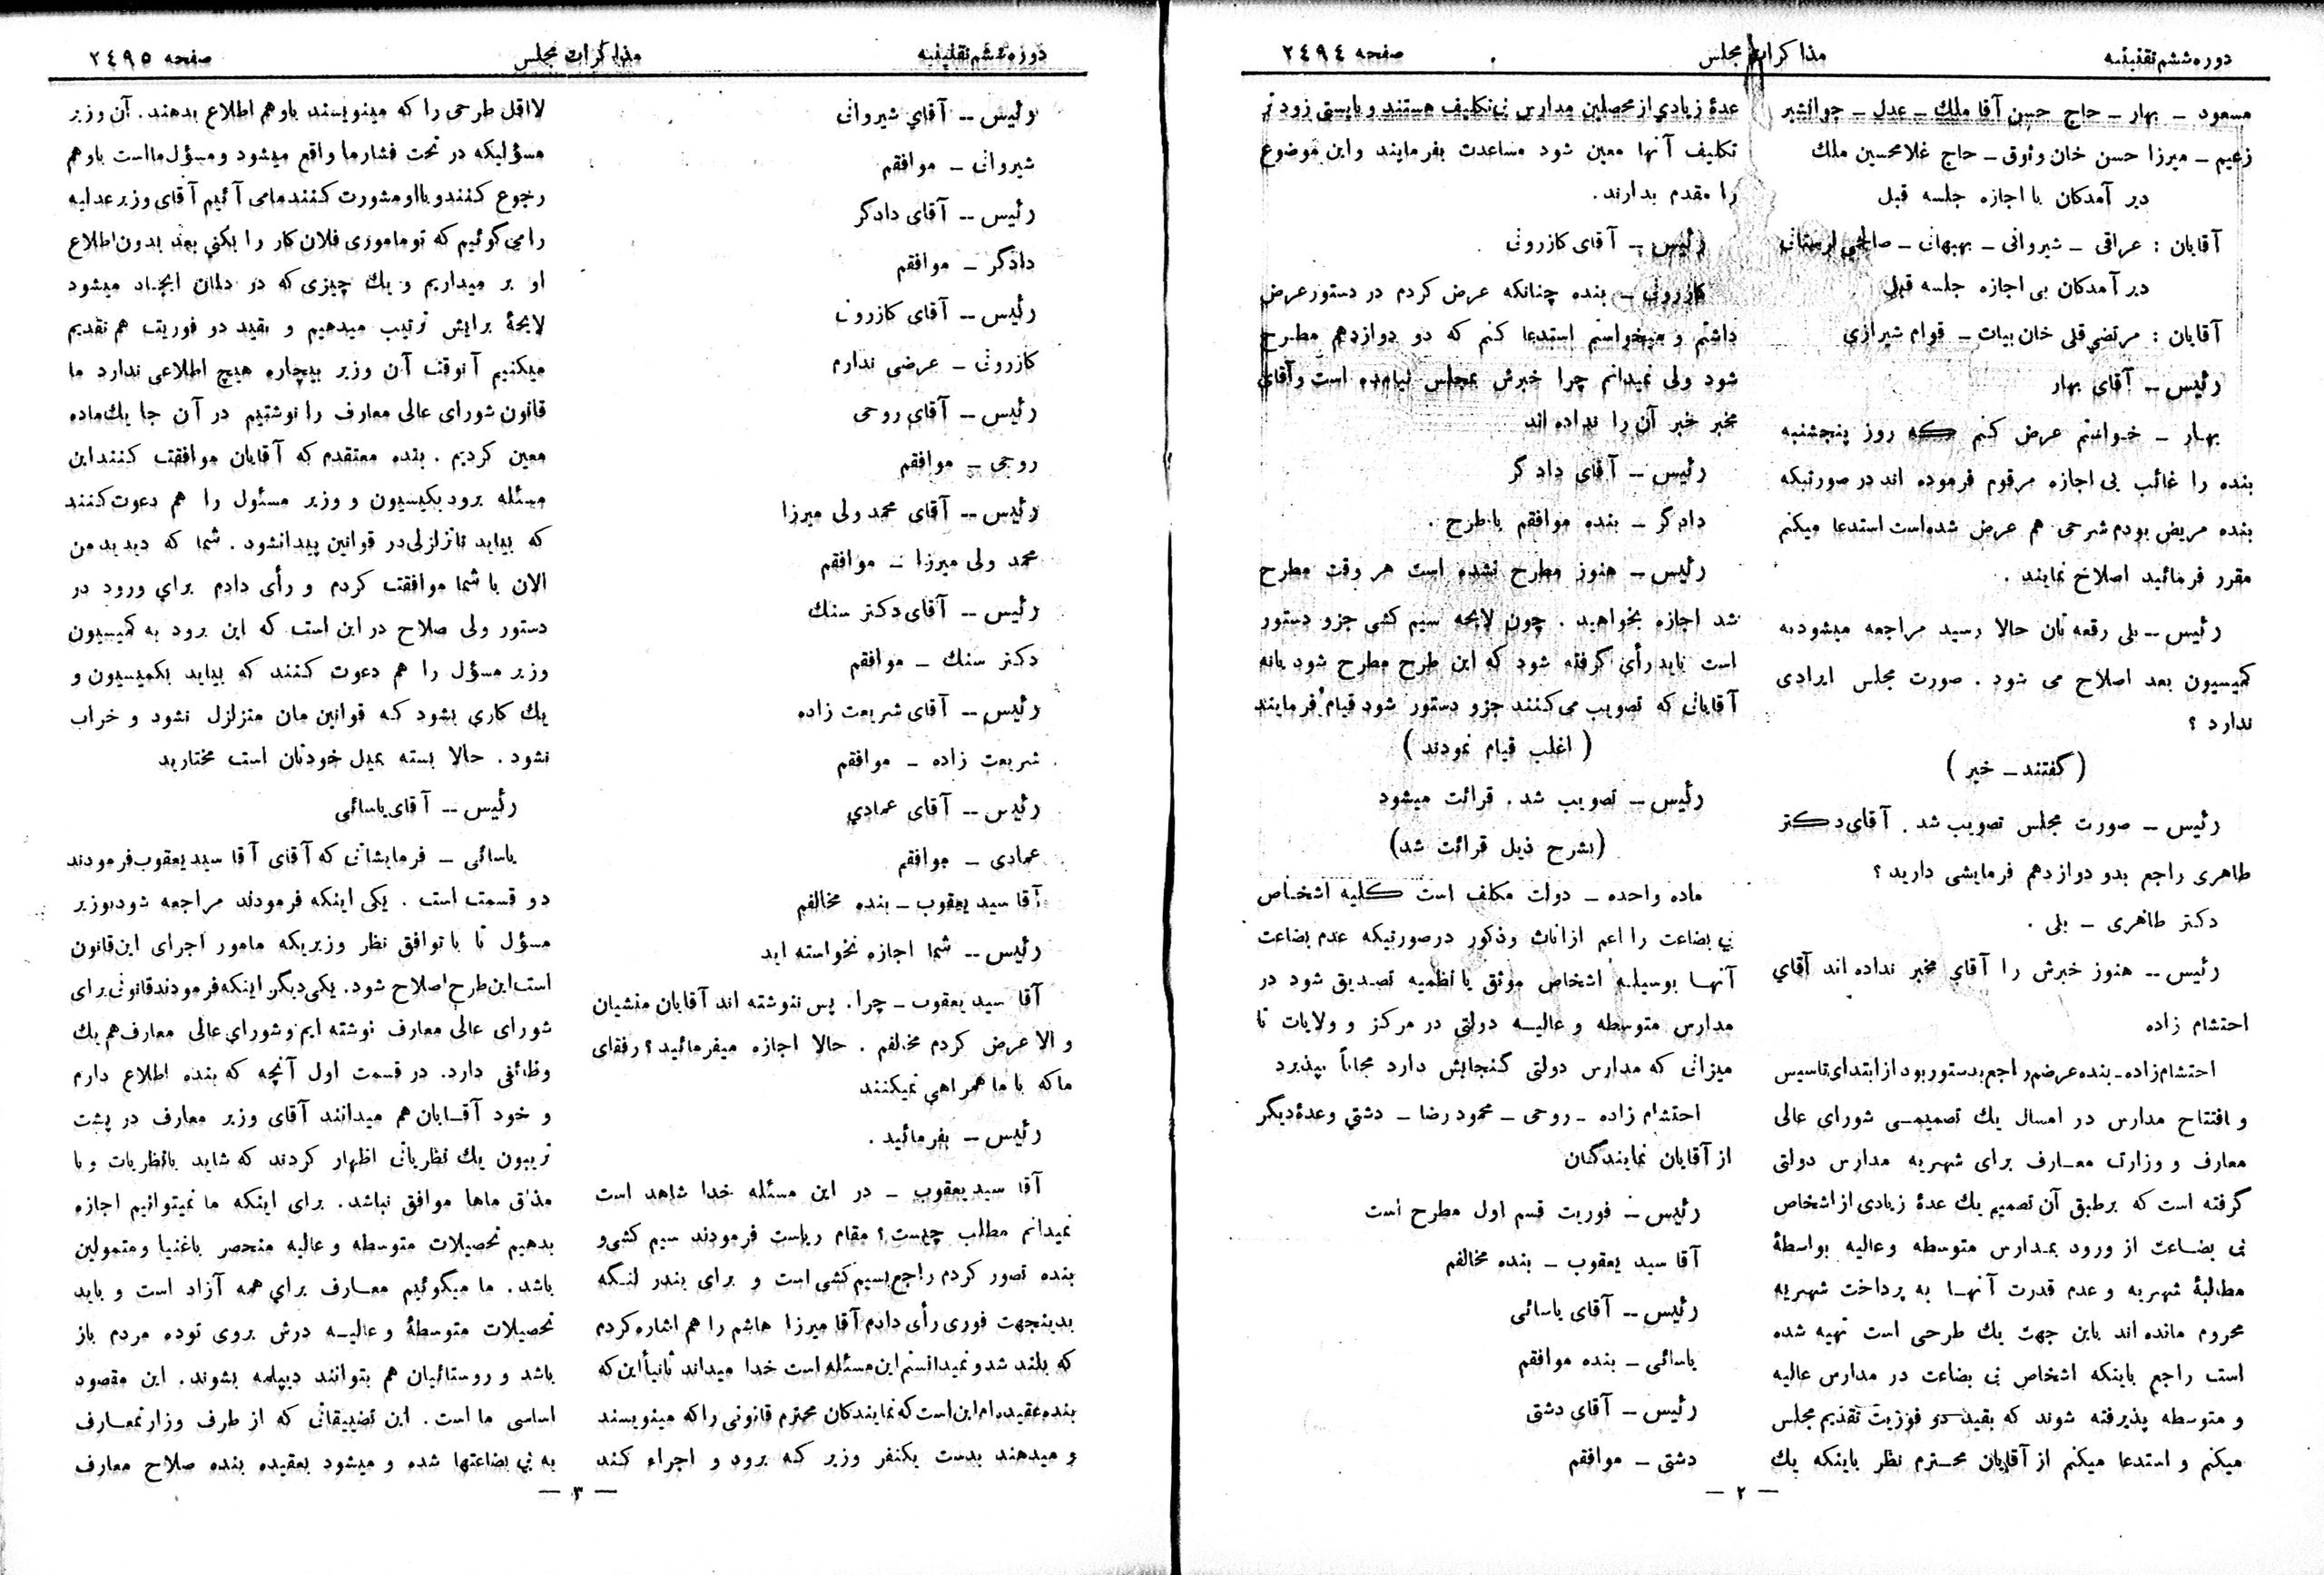 دوره ششم تقنینیه
مذاکرات مجلس
صفحه ۲٤۹٤
مسعود ـ بهار ـ حاج حسن آقا ملك ـ عدل ـ جوانشیر
زعیم ـ میرزا حسن خان وثوق ـ حاج غلامحسین ملك
دیر آمدگان با اجازه جلسه قبل
آقایان : عراقی ـ شیروانی ـ بهبهانی ـ صالحی لرستانی
دیر آمدگان بی اجازه جلسه قبل
آقایان : مرتضی قلی خان بیات ـ قوام شیرازی
رئیس ـ آقای بهار
بهار ـ خواستم عرض کنم که روز پنجشنبه
بنده را غائب بی اجازه مرقوم فرموده اند در صورتیکه
بنده مریض بودم شرحی هم عرض شده است استدعا میکنم
مقرر فرمائید اصلاح نمایند .
رئیس ـ بلی رقعه تان حالا رسید مراجعه میشود به
کمیسیون بعد اصلاح می شود . صورت مجلس ایرادی
ندارد ؟
( گفتند ـ خیر )
رئیس ـ صورت مجلس تصویب شد . آقای دکتر
طاهری راجع بدو دوازدهم فرمایشی دارید ؟
دکتر طاهری ـ بلی .
رئیس ـ هنوز خبرش را آقای مخبر نداده اند آقای
احتشام زاده
احتشام زاده ـ بنده عرضم راجع بدستور بود از ابتدای تاسیس
و افتتاح مدارس در امسال یك تصمیمی شورای عالی
معارف و وزارت معارف برای شهریه مدارس دولتی
گرفته است که برطبق آن تصمیم یك عدۀ زیادی از اشخاص
بی بضاعت از ورود بمدارس متوسطه و عالیه بواسطۀ
مطالبۀ شهریه و عدم قدرت آنها به پرداخت شهریه
محروم مانده اند باین جهت یك طرحی است تهیه شده
است راجع باینکه اشخاص بی بضاعت در مدارس عالیه
و متوسطه پذیرفته شوند که بقید دو فوریت تقدیم مجلس
میکنم و استدعا میکنم از آقایان محترم نظر باینکه یك
عدۀ زیادی از محصلین مدارس بی تکلیف هستند و بایستی زود تر
تکلیف آنها معین شود مساعدت بفرمایند و این موضوع
را مقدم بدارند .
رئیس ـ آقای کازرونی
کازرونی ـ بنده چنانکه عرض کردم در دستور عرض
داشتم و میخواستم استدعا کنم که دو دوازدهم مطرح
شود ولی نمیدانم چرا خبرش بمجلس نیامده است و آقای
مخبر خبر آن را نداده اند
رئیس ـ آقای دادگر
دادگر ـ بنده موافقم با طرح .
رئیس ـ هنوز مطرح نشده است هر وقت مطرح
شد اجازه بخواهید . چون لایحه سیم کشی جزو دستور
است باید رأی گرفته شود که این طرح مطرح شود یا نه
آقایانی که تصویب می کنند جزو دستور شود قیام فرمایند
( اغلب قیام نمودند )
رئیس ـ تصویب شد . قرائت میشود
(بشرح ذیل قرائت شد)
ماده واحده ـ دولت مکلف است کلیه اشخاص
بی بضاعت را اعم از اناث و ذکور در صورتیکه عدم بضاعت
آنها بوسیله اشخاص موثق یا نظمیه تصدیق شود در
مدارس متوسطه و عالیه دولتی در مرکز و ولایات تا
میزانی که مدارس دولتی گنجایش دارد مجاناً بپذیرد
احتشام زاده ـ روحی ـ محمود رضا ـ دشتی و عدۀ دیگر
از آقایان نمایندگان
رئیس ـ فوریت قسم اول مطرح است
آقا سید یعقوب ـ بنده مخالفم
رئیس ـ آقای یاسائی
یاسائی ـ بنده موافقم
رئیس ـ آقای دشتی
دشتی ـ موافقم
ـ ۲ ـ
دوره ششم تقنینیه
مذاکرات مجلس
صفحه ۲٤۹٥
رئیس ـ آقای شیروانی
شیروانی ـ موافقم
رئیس ـ آقای دادگر
دادگر ـ موافقم
رئیس ـ آقای کازرونی
کازرونی ـ عرضی ندارم
رئیس ـ آقای روحی
روحی ـ موافقم
رئیس ـ آقای محمد ولی میرزا
محمد ولی میرزا ـ موافقم
رئیس ـ آقای دکتر سنك
دکتر سنك ـ موافقم
رئیس ـ آقای شریعت زاده
شریعت زاده ـ موافقم
رئیس ـ آقای عمادی
عمادی ـ موافقم
آقا سید یعقوب ـ بنده مخالفم
رئیس ـ شما اجازه نخواسته اید
آقا سید یعقوب ـ چرا . پس ننوشته اند آقایان منشیان
و الا عرض کردم مخالفم . حالا اجازه میفرمائید ؟ رفقای
ما که با ما همراهی نمیکنند
رئیس ـ بفرمائید .
آقا سید یعقوب ـ در این مسئله خدا شاهد است
نمیدانم مطلب چیست ؟ مقام ریاست فرمودند سیم کشی و
بنده تصور کردم راجع بسیم کشی است و برای بندر لنگه
بدینجهت فوری رأی دادم آقا میرزا هاشم را هم اشاره کردم
که بلند شد و نمیدانستم این مسئله است خدا میداند ثانیاً این که
بنده عقیده ام این است که نمایندگان محترم قانونی را که مینویسند
و میدهند بدست یکنفر وزیر که برود و اجراء کند
لااقل طرحی را که مینویسند باو هم اطلاع بدهند . آن وزیر
مسؤلیکه در تحت فشار ما واقع میشود و مسؤل ما است باو هم
رجوع کنند و با او مشورت کنند ما می آئیم آقای وزیر عدلیه
را می گوئیم که تو ماموری فلان کار را بکنی بعد بدون اطلاع
او بر میداریم و یك چیزی که در دلمان ایجاد میشود
لایحۀ برایش ترتیب میدهیم و بقید دو فوریت هم تقدیم
میکنیم آنوقت آن وزیر بیچاره هیچ اطلاعی ندارد ما
قانون شورای عالی معارف را نوشتیم در آن جا یك ماده
معین کردیم . بنده معتقدم که آقایان موافقت کنند این
مسئله برود بکمیسیون و وزیر مسئول را هم دعوت کنند
که بیاید تا تزلزلی در قوانین پیدا نشود . شما که دیدید من
الان با شما موافقت کردم و رأی دادم برای ورود در
دستور ولی صلاح در این است که این برود به کمیسیون
وزیر مسؤل را هم دعوت کنند که بیاید بکمیسیون و
یك کاری بشود که قوانین مان متزلزل نشود و خراب
نشود . حالا بسته بمیل خودتان است مختارید
رئیس ـ آقای یاسائی
یاسائی ـ فرمایشاتی که آقای آقا سید یعقوب فرمودند
دو قسمت است . یکی اینکه فرمودند مراجعه شود بوزیر
مسؤل تا با توافق نظر وزیریکه مامور اجرای این قانون
است این طرح اصلاح شود . یکی دیگر اینکه فرمودند قانونی برای
شورای عالی معارف نوشته ایم و شورای عالی معارف هم یك
وظائفی دارد . در قسمت اول آنچه که بنده اطلاع دارم
و خود آقایان هم میدانند آقای وزیر معارف در پشت
تریبون یك نظریاتی اظهار کردند که شاید با نظریات و با
مذاق ماها موافق نباشد . برای اینکه ما نمیتوانیم اجازه
بدهیم تحصیلات متوسطه و عالیه منحصر باغنیا و متمولین
باشد . ما میگوئیم معارف برای همه آزاد است و باید
تحصیلات متوسطۀ و عالیه درش بروی توده مردم باز
باشد و روستائیان هم بتوانند دیپلمه بشوند . این مقصود
اساسی ما است . این تضییقاتی که از طرف وزارتمعارف
به بی بضاعتها شده و میشود بعقیده بنده صلاح معارف
ـ ۳ ـ